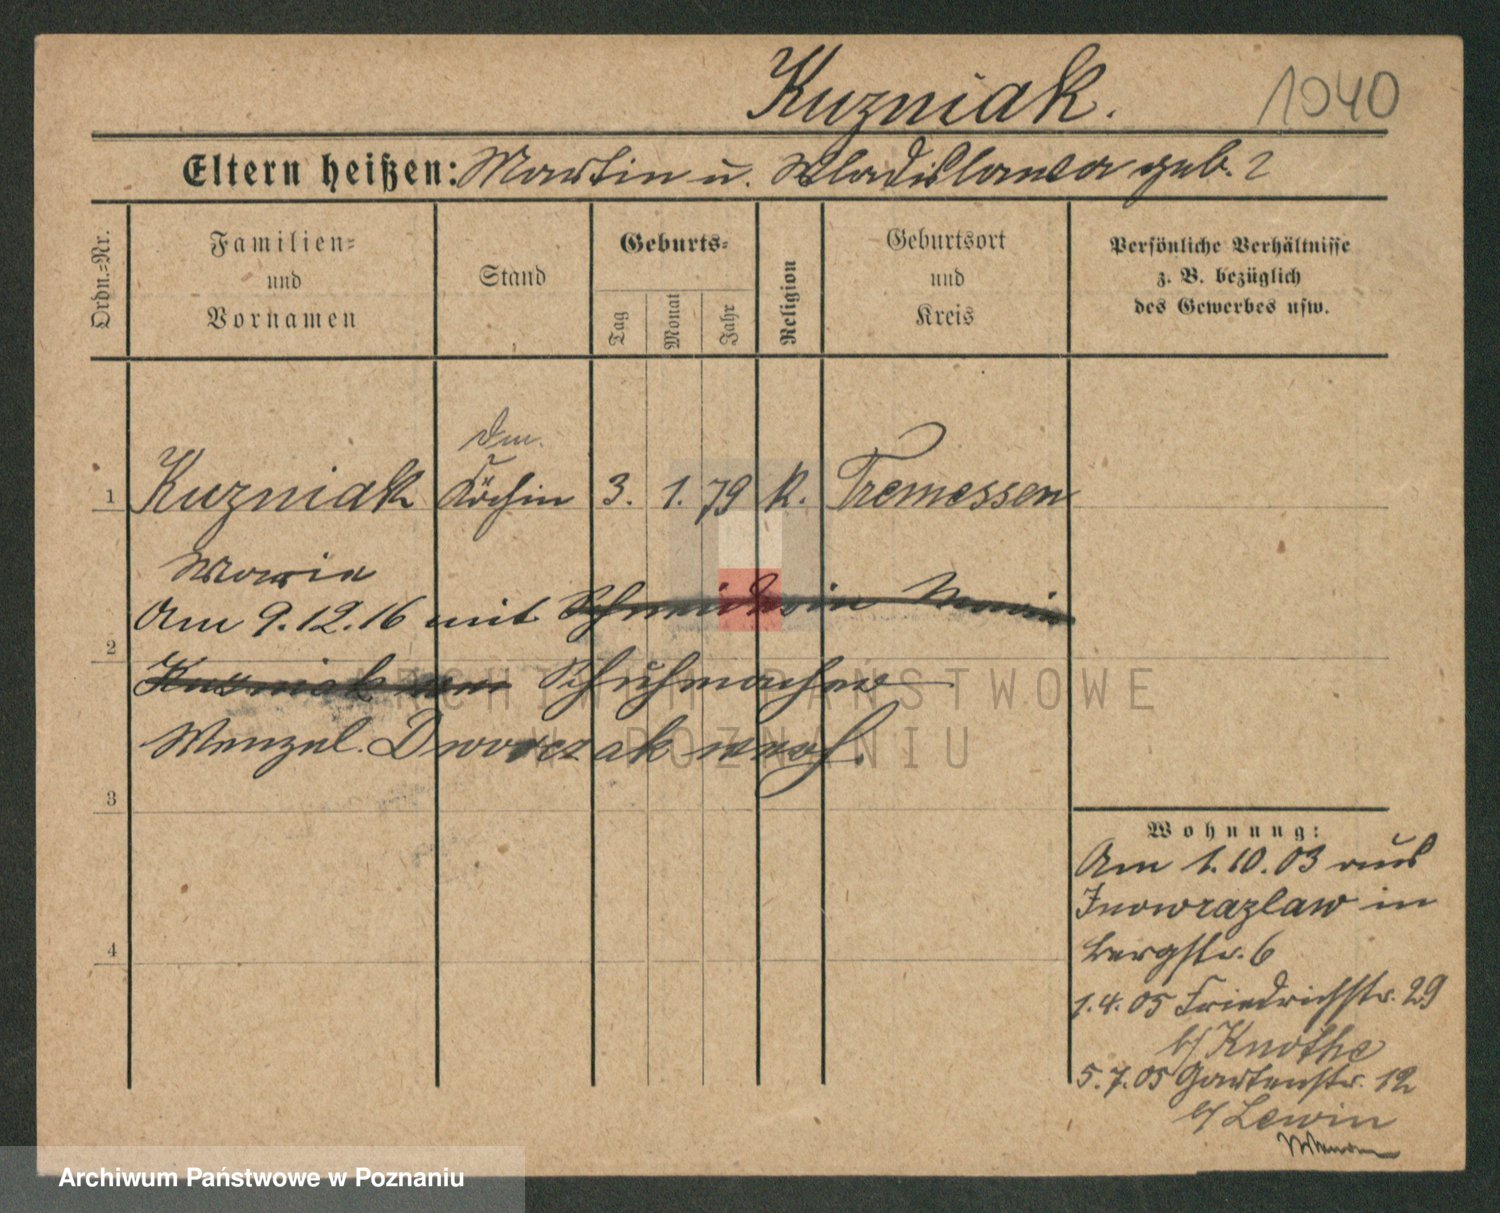 Kuzniak.
1040
Eltern heißen: Martin u. Wladislawa geb. ?
Ordn.=Nr.
Familien=
und
Vornamen
Stand
Geburts=
Tag
Monat
Jahr
Religion
Geburtsort
und
Kreis
Persönliche Verhältnisse
z. B. bezüglich
des Gewerbes usw.
1 Kuzniak Köchin 3. 1. 79 k. Tremessen
Marie
Am 9.12.16 mit Schneiderin Marie
2
Kuzniak Schuhmacher
Wenzel Dworczak verh.
3
4
Wohnung:
Am 1.10.03 aus
Inowrazlaw in
Bergstr. 6
1.4.05 Friedrichstr. 29
b/ Knothe
5.7.05 Gartenstr. 12
b/ Lewin
ARCHIWUM PAŃSTWOWE
W POZNANIU
Archiwum Państwowe w Poznaniu